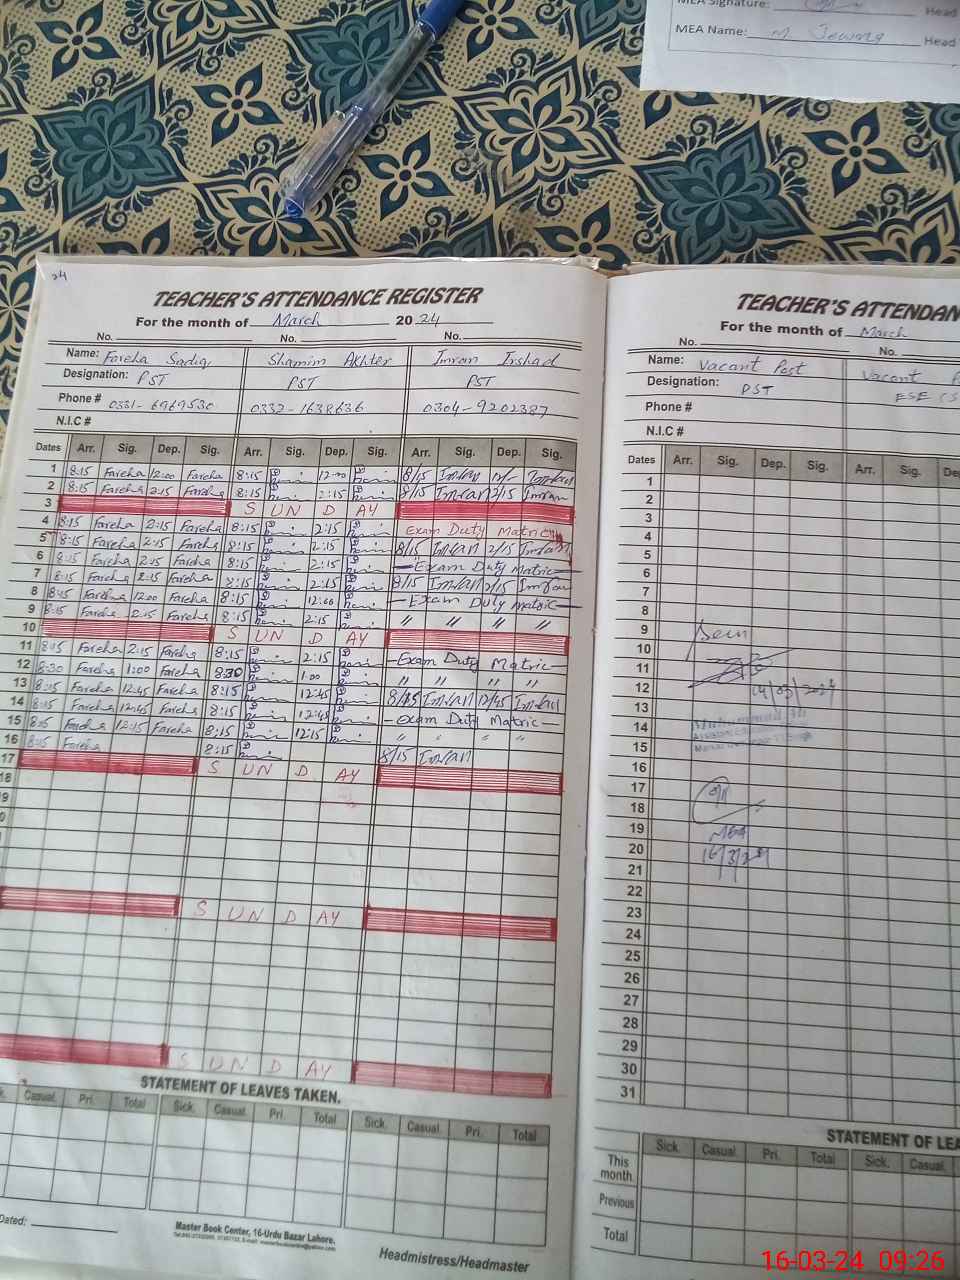 MEA Signature: Head
MEA Name: M Head
24
TEACHER'S ATTENDANCE REGISTER
For the month of March 2024
No. No. No.
Name: Fareha Sadiq Shamim Akhter Imran Irshad
Designation: PST PST PST
Phone # 0331-6969530 0332-1638636 0304-9202387
N.I.C #
Dates Arr. Sig. Dep. Sig. Arr. Sig. Dep. Sig. Arr. Sig. Dep. Sig.
1 8:15 Fareha 12:00 Fareha 8:15 12:00 8/15 Imran 12/- Imran
2 8:15 Fareha 2:15 Fareha 8:15 2:15 8/15 Imran 2/15 Imran
3 S UN D AY
4 8:15 Fareha 2:15 Fareha 8:15 2:15 Exam Duty Matric
5 8:15 Fareha 2:15 Fareha 8:15 2:15 8/15 Imran 2/15 Imran
6 8:15 Fareha 2:15 Fareha 8:15 2:15 Exam Duty Matric
7 8:15 Fareha 2:15 Fareha 8:15 2:15 8/15 Imran 2/15 Imran
8 8:15 Fareha 12:00 Fareha 8:15 12:00 Exam Duty Matric
9 8:15 Fareha 2:15 Fareha 8:15 2:15 " " " "
10 S UN D AY
11 8:15 Fareha 2:15 Fareha 8:15 2:15 Exam Duty Matric
12 8:30 Fareha 1:00 Fareha 8:30 1:00 " " " "
13 8:15 Fareha 12:45 Fareha 8:15 12:45 8/15 Imran 12/45 Imran
14 8:15 Fareha 12:45 Fareha 8:15 12:45 Exam Duty Matric
15 8:15 Fareha 12:15 Fareha 8:15 12:15 " " " "
16 8:15 Fareha 8:15 8/15 Imran
17 S UN D AY
18
S UN D AY
S UN D AY
STATEMENT OF LEAVES TAKEN.
Casual. Pri. Total Sick. Casual. Pri. Total Sick. Casual. Pri. Total
Dated:
Master Book Center, 16-Urdu Bazar Lahore.
Headmistress/Headmaster
TEACHER'S ATTENDAN
For the month of March
No. No.
Name: Vacant Post Vacant
Designation: PST ESE
Phone #
N.I.C #
Dates Arr. Sig. Dep. Sig. Arr. Sig.
1
2
3
4
5
6
7
8
9
10 Seen
11
12 14/03/2024
13
14
15
16
17
18
19 MEA
20 16/3/24
21
22
23
24
25
26
27
28
29
30
31
STATEMENT OF LEA
This month. Sick. Casual. Pri. Total Sick. Casual.
Previous
Total
16-03-24 09:26